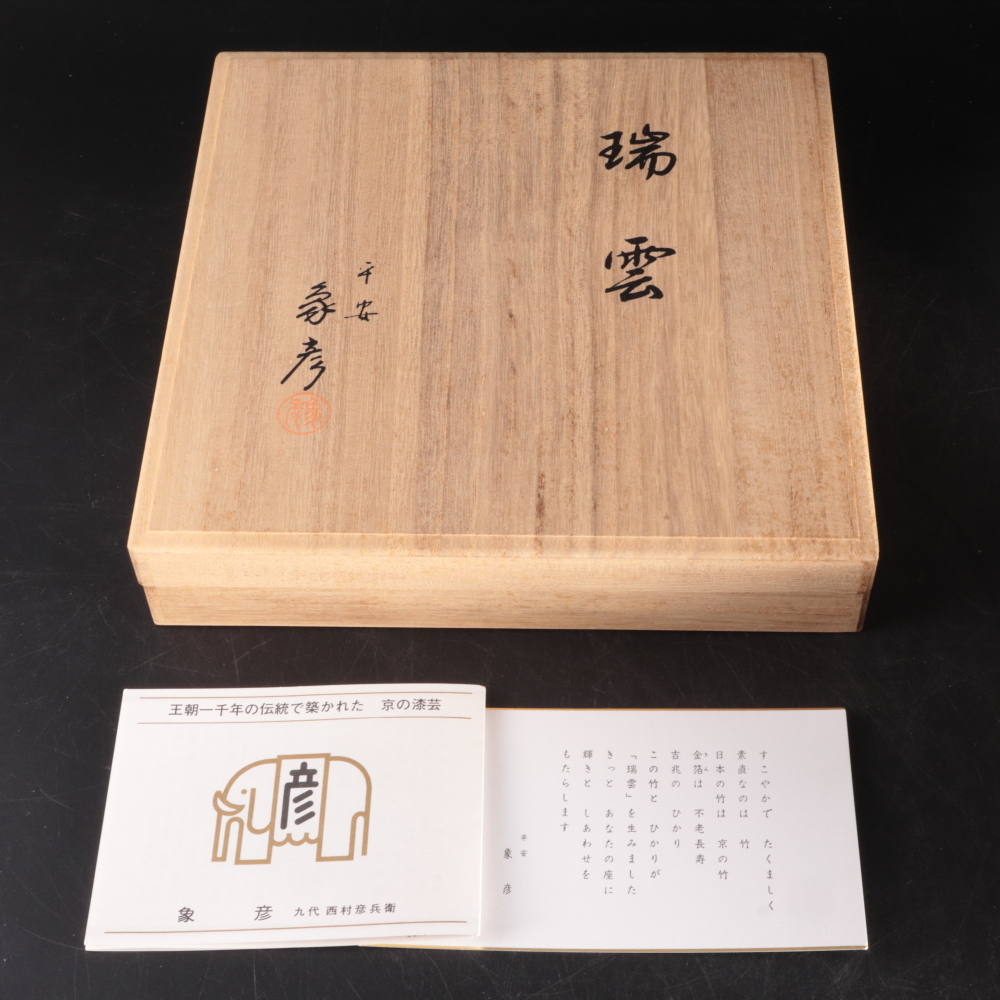 瑞雲
平安
象彦
王朝一千年の伝統で築かれた 京の漆芸
彦
象彦 九代 西村彦兵衛
すこやかで たくましく
素直なのは 竹
日本の竹は 京の竹
金箔は 不老長寿
吉兆の ひかり
この竹と ひかりが
「瑞雲」を生みました
きっと あなたの座に
輝きと しあわせを
もたらします
平安
象彦